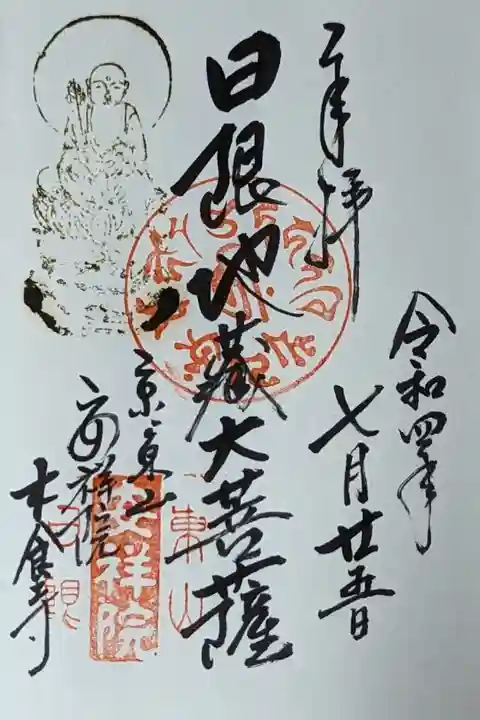 奉拝
令和四年
七月廿五日
日限地蔵大菩薩
京東山
安祥院
木食寺
東山
安祥院
日観